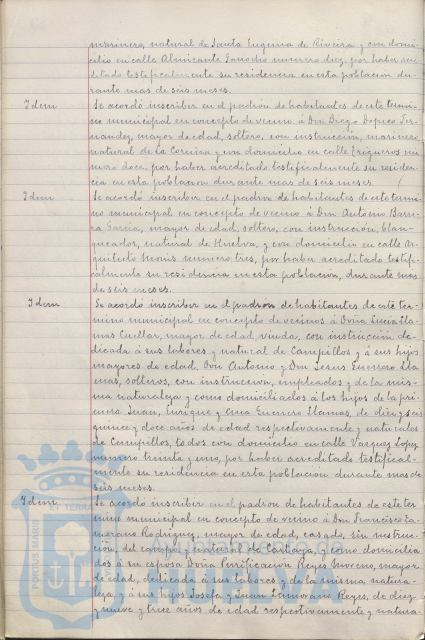 marinero, natural de Santa Eugenia de Riveira y con domi-
cilio en calle Almirante Garrocho numero diez, por haber acre
ditado testificalmente su residencia en esta poblacion du-
rante mas de seis meses.
Idem Se acordó inscribir en el padrón de habitantes de este termi-
no municipal en concepto de vecino á Don Diego Fer-
nandez, mayor de edad, soltero, con instruccion, marinero
natural de la Coruña y con domicilio en calle Trigueros nú
mero doce, por haber acreditado testificalmente su residen-
cia en esta poblacion durante mas de seis meses.
Idem Se acordó inscribir en el padron de habitantes de este termi-
no municipal en concepto de vecino á Don Antonio Barre-
ra Garcia, mayor de edad, soltero, con instrucción, blan-
queador, natural de Huelva, y con domicilio en calle Ar-
quitecto Monis numero tres, por haber acreditado testifi-
calmente su residencia en esta poblacion, durante mas
de seis meses.
Idem Se acordó inscribir en el padron de habitantes de este ter-
mino municipal en concepto de vecinos á Doña Lucia Lla-
mas Cuellar, mayor de edad, viuda, con instrucción de-
dicada á sus labores y natural de Campillos y á sus hijos
mayores de edad, Don Antonio y Don Jesus Guerrero Lla
mas, solteros, con instruccion, empleados y de la mis-
ma naturaleza y como domiciliados á los hijos de la pri-
mera Juan, Enrique y Ana Guerrero Llamas, de diez y seis
quince y doce años de edad respectivamente y naturales
de Campillos, todos con domicilio en calle Vazquez Lopez
numero treinta y uno, por haber acreditado testifical-
mente su residencia en esta poblacion durante mas de
seis meses.
Idem Se acordó inscribir en el padron de habitantes de este ter
mino municipal en concepto de vecino á Don Francisco Za-
morano Rodriguez, mayor de edad, casado, sin instruc-
cion, del campo y natural de Cartaya, y como domicilia
dos á su esposa Doña Purificacion Reyes Moreno, mayor
de edad, dedicada á sus labores y de la misma natura-
leza, y á sus hijos Josefa y Juan Zamorano Reyes, de diez
y nueve y trece años de edad respectivamente y natura-
PORTUS MARIS